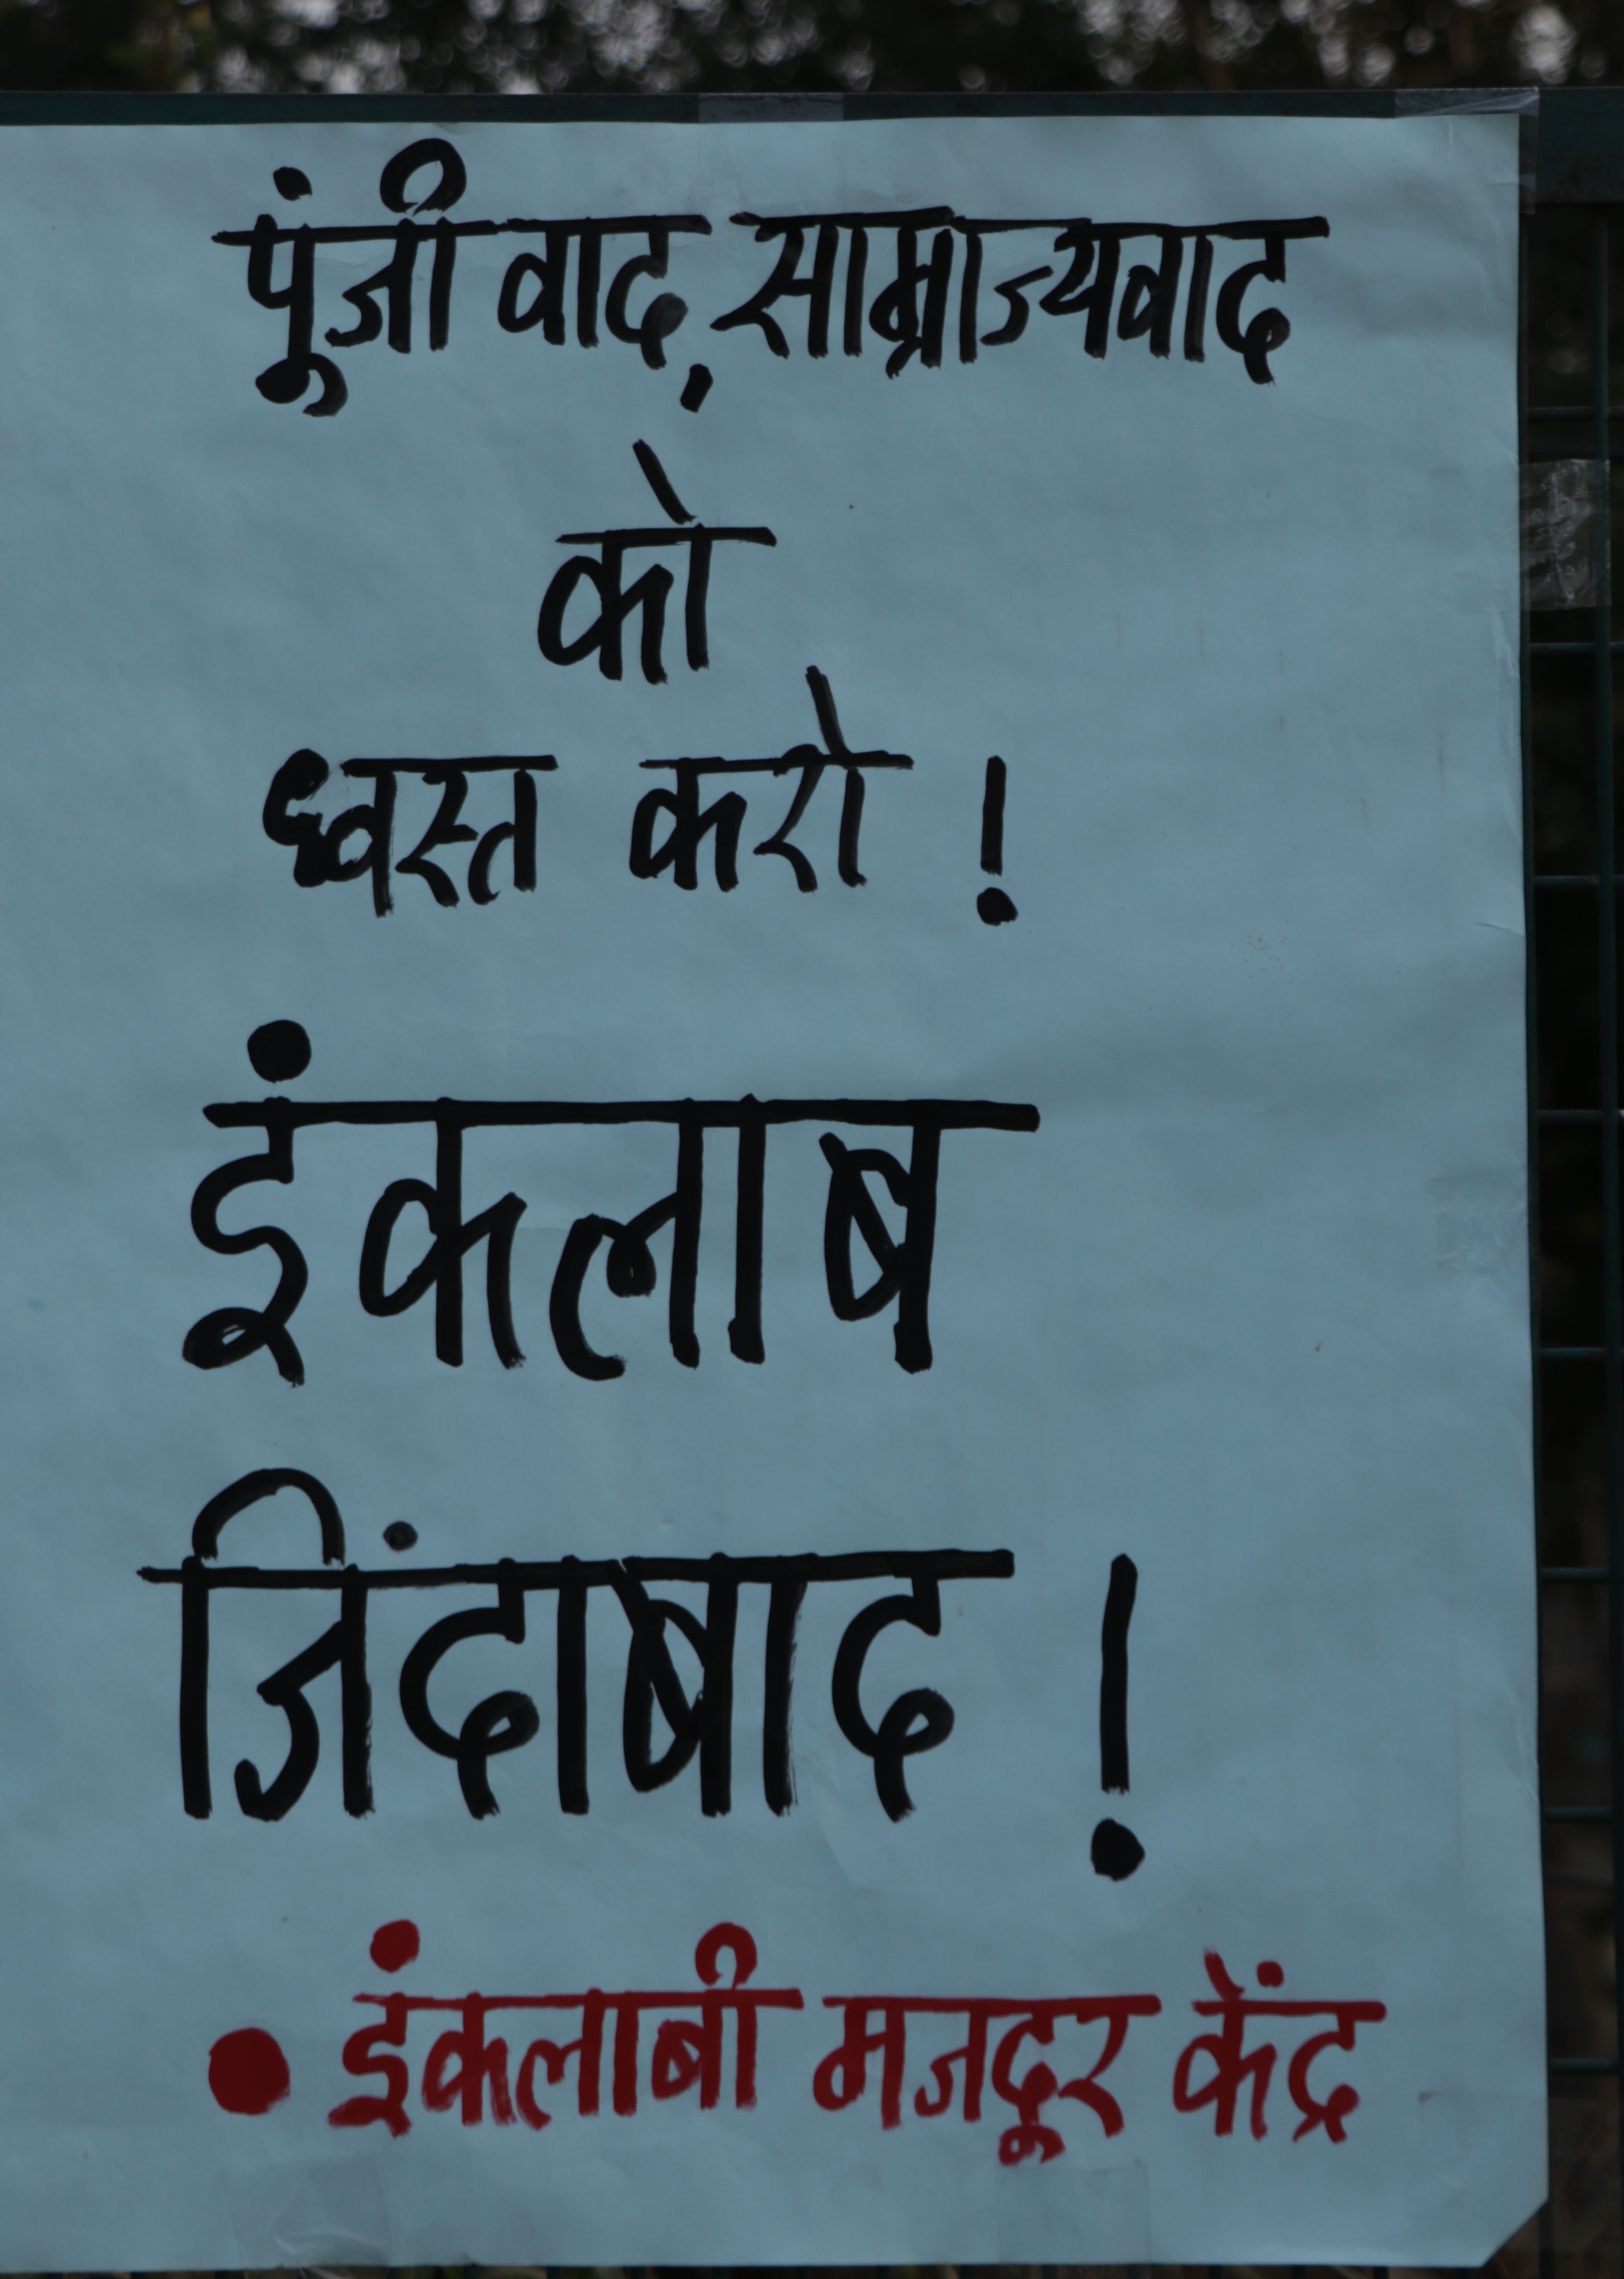 पूंजीवाद, साम्राज्यवाद
को
ध्वस्त करो !
इंकलाब
जिंदाबाद !
• इंकलाबी मजदूर केंद्र